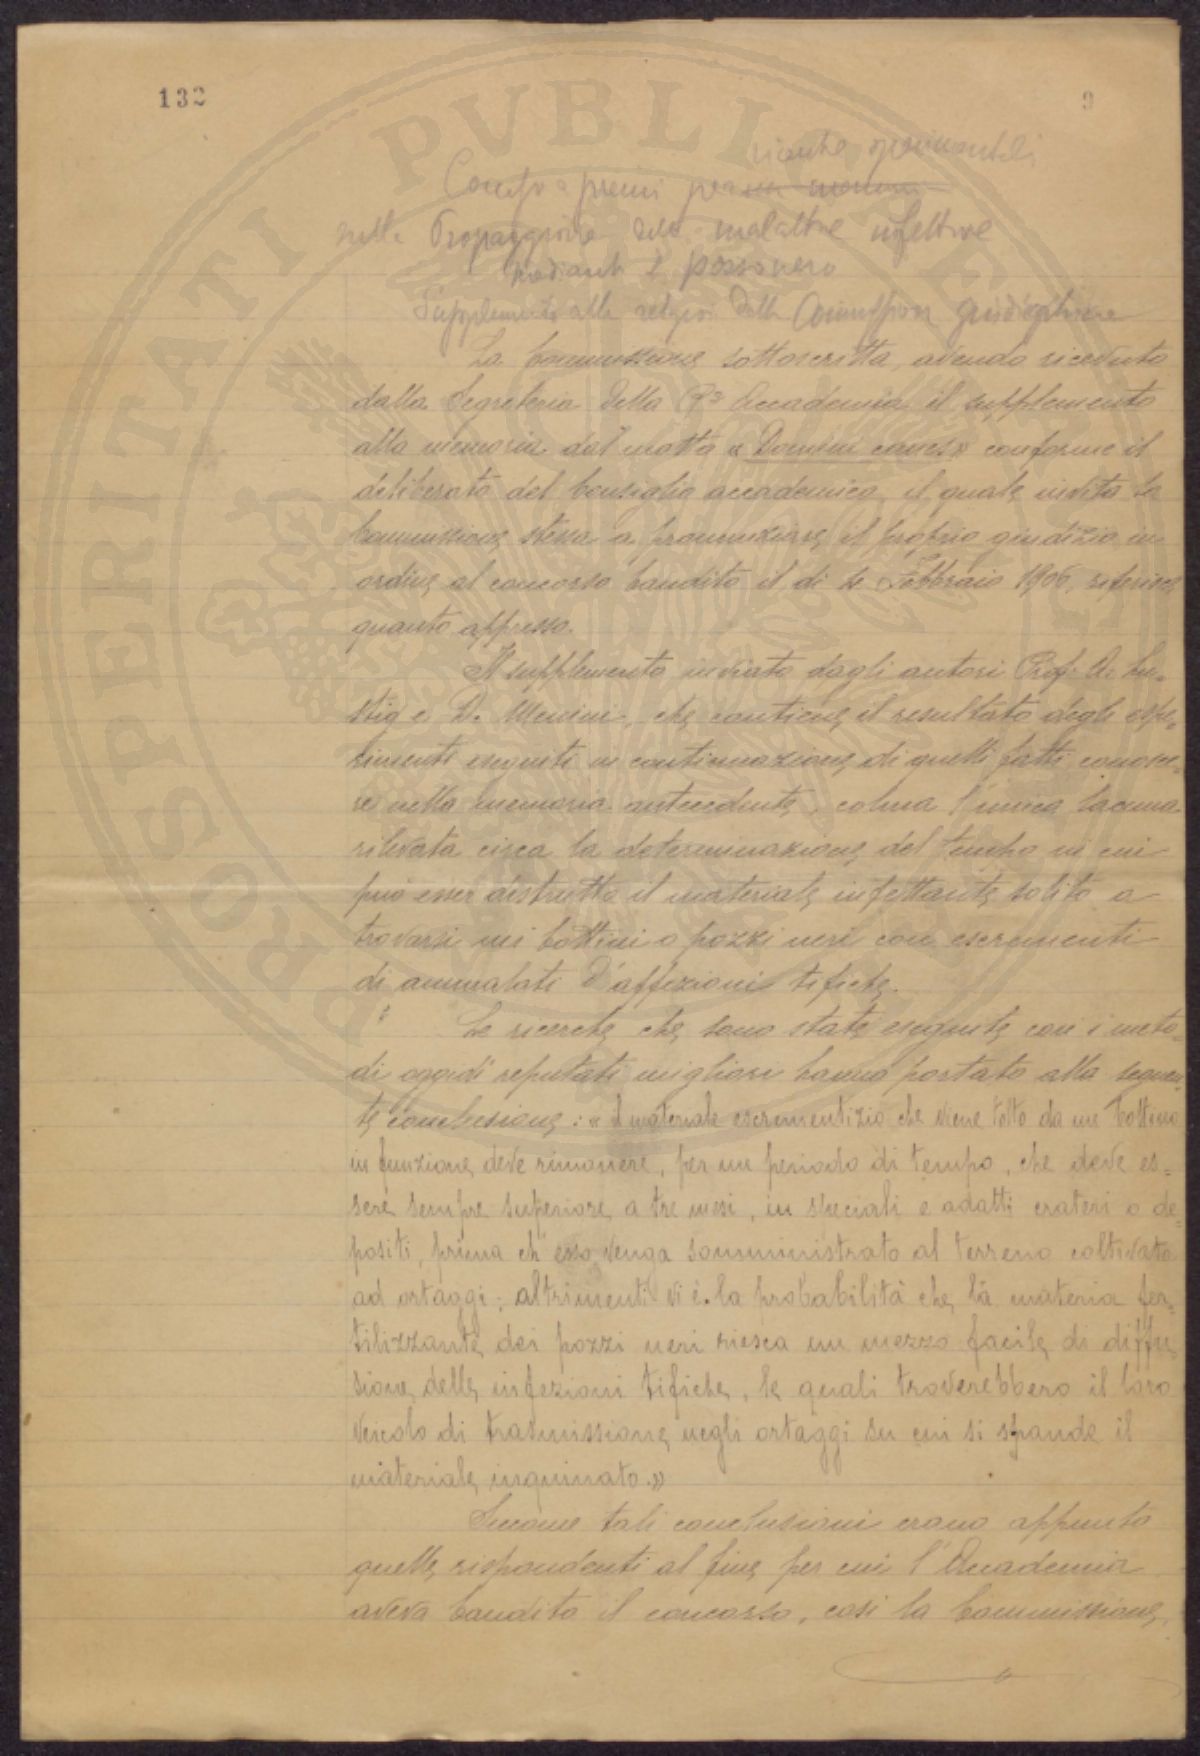 132
9
ricerche sperimentali
Concorso a premi per una memoria
nella Propagazione delle malattie infettive
mediante il pozzo nero
Supplemento alla relazione della Commissione giudicatrice
La Commissione sottoscritta, avendo ricevuto
dalla Segreteria della Rª Accademia il supplemento
alla memoria dal motto « Domini canes » conforme il
deliberato del Consiglio accademico, il quale invita la
Commissione stessa a pronunziare il proprio giudizio in
ordine al concorso bandito il di 4 Febbraio 1906, riferisce
quanto appresso.
Il supplemento inviato dagli autori Prof. A. Lu-
stig e D. Menini, che contiene il resultato degli espe-
rimenti eseguiti in continuazione di quelli fatti conosce-
re nella memoria antecedente, colma l'unica lacuna
rilevata circa la determinazione del tempo in cui
può esser distrutto il materiale infettante solito a
trovarsi nei bottini o pozzi neri con escrementi
di ammalati d'affezioni tifiche.
Le ricerche che sono state eseguite con i meto-
di oggidì reputati migliori hanno portato alla seguen-
te conclusione : « il materiale escrementizio che viene tolto da un bottino
in funzione deve rimanere, per un periodo di tempo, che deve es-
sere sempre superiore a tre mesi, in speciali e adatti crateri o de-
positi, prima ch'esso venga somministrato al terreno coltivato
ad ortaggi; altrimenti vi è la probabilità che la materia fer-
tilizzante dei pozzi neri riesca un mezzo facile di diffu-
sione delle infezioni tifiche, le quali troverebbero il loro
veicolo di trasmissione negli ortaggi su cui si spande il
materiale inquinato. »
Siccome tali conclusioni erano appunto
quelle rispondenti al fine per cui l'Accademia
aveva bandito il concorso, così la Commissione
PROSPERITATI PUBLICAE